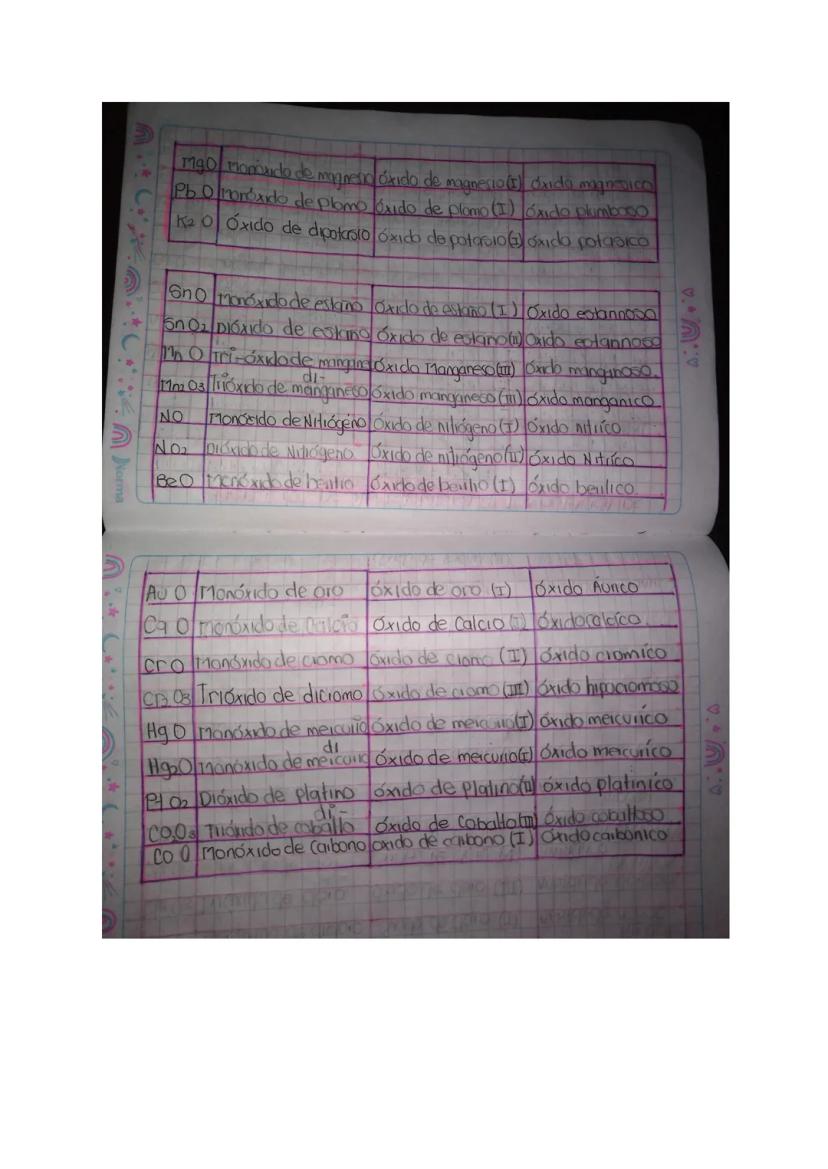 MgO Monóxido de magnesio óxido de magnesio (I) óxido magnesico
Pb O monóxido de plomo óxido de plomo (I) óxido plumboso
K2 O Óxido de dipotasio óxido de potasio (I) óxido potasico
SnO monóxido de estaño óxido de estaño (I) óxido estannoso
SnO2 Dióxido de estaño óxido de estaño (II) óxido estannoso
Mn O Tri-óxido de óxido Manganeso (III) óxido manganoso
di-
Mn2 O3 Trióxido de manganeso óxido manganeso (III) óxido manganico
NO Monóxido de Nitrógeno óxido de nitrógeno (I) óxido nitríco
NO2 Dióxido de Nitrógeno óxido de nitrógeno (II) óxido Nitríco
BeO Monóxido de berilio óxido de berilio (I) óxido berilico
Norma
Au O Monóxido de oro óxido de oro (I) óxido Áurico
Ca O monóxido de Calcio óxido de Calcio (I) óxido calcíco
Cr O Monóxido de cromo óxido de cromo (II) óxido cromíco
Cr2 O3 Trióxido de dicromo óxido de cromo (III) óxido hipocromoso
Hg O monóxido de mercurio óxido de mercurio (I) óxido mercuríco
di
Hg2O monóxido de mercurio óxido de mercurio (I) óxido mercuríco
Pt O2 Dióxido de platino óxido de platino (II) óxido platiníco
di-
CO2O3 Trióxido de cobalto óxido de Cobalto (III) óxido cobaltoso
CO O Monóxido de Carbono óxido de carbono (I) óxido carbónico